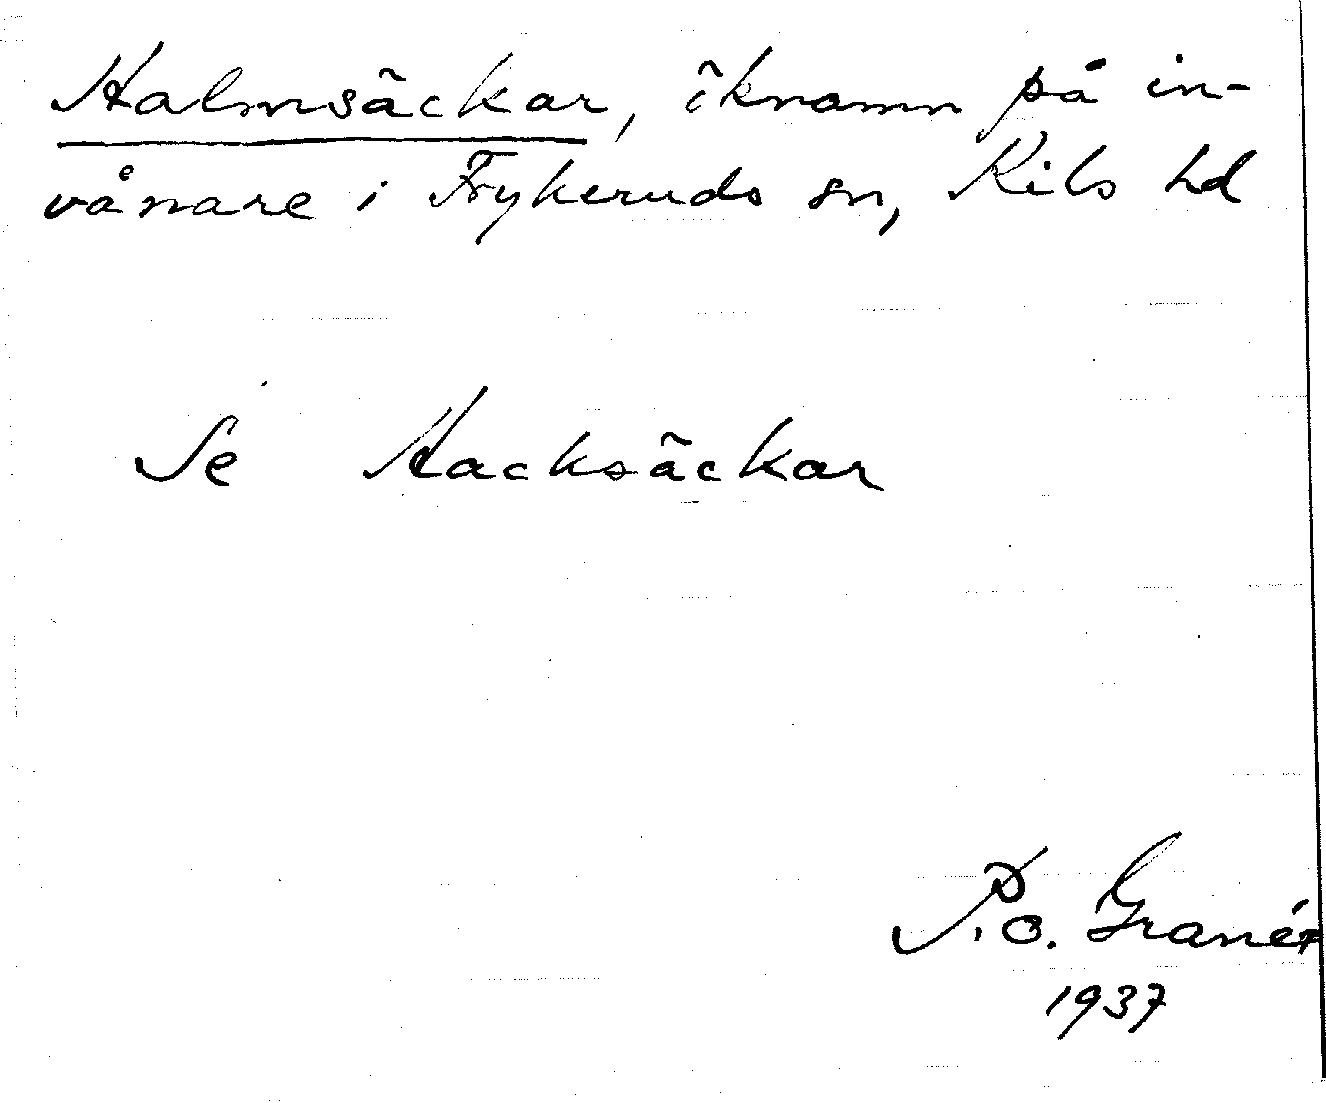 Halmsäckar, öknamn på in-
vånare i Frykeruds sn, Kils hd
Se Hacksäckar
P.O. Granér
1937